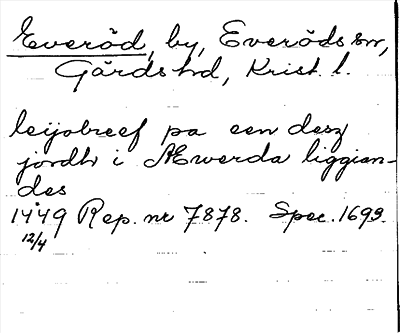 Everöd, by, Everöds sn,
Gärds hd, Krist. l.
leijebreef pa een desz
jordh i Æwerda liggian-
des
1449 Rep. nr 7878. Spec. 1693.
12/4